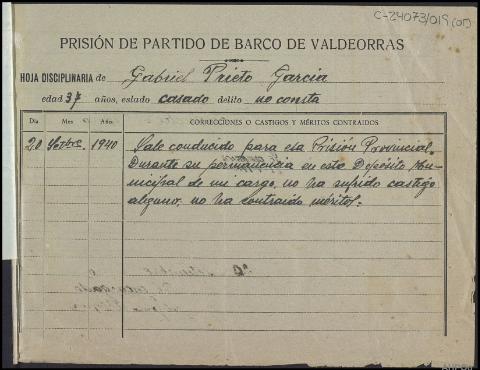 C-24073/019(01)
PRISIÓN DE PARTIDO DE BARCO DE VALDEORRAS
HOJA DISCIPLINARIA de Gabriel Prieto Garcia
edad 37 años, estado casado delito no consta
Día Mes Año CORRECCIONES O CASTIGOS Y MÉRITOS CONTRAIDOS
20 Setbre 1940 Sale conducido para esa Prisión Provincial.
Durante su permanencia en este Depósito Mu-
nicipal de mi cargo, no ha sufrido castigo
alguno, no ha contraido méritos.